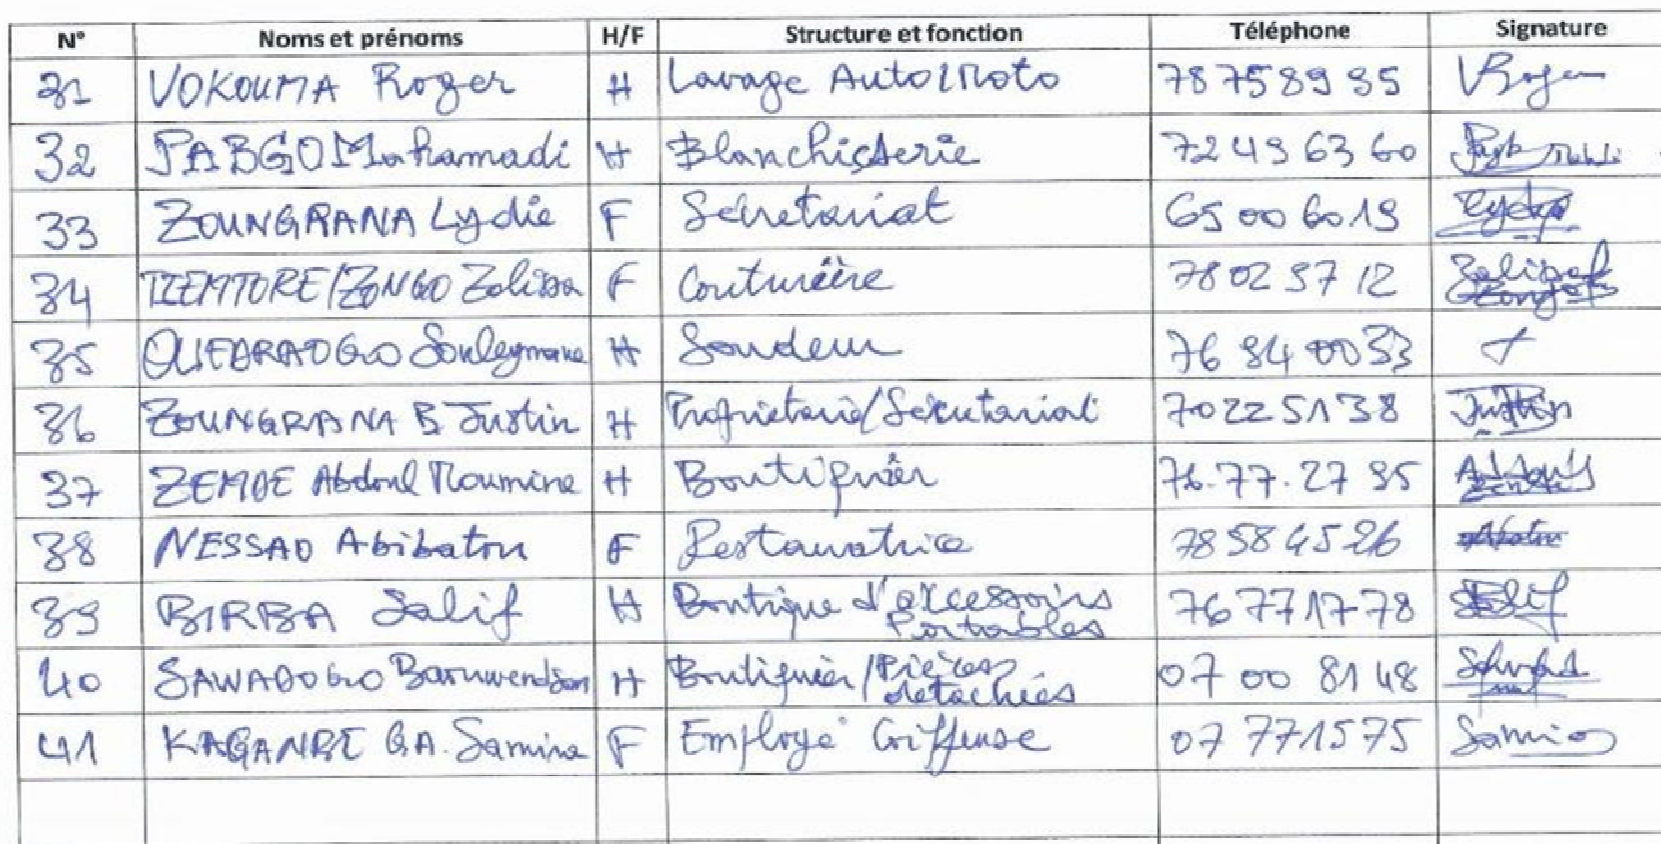 N° Noms et prénoms H/F Structure et fonction Téléphone Signature
31 VOKOUMA Roger H Lavage Auto/Moto 78758995 VRoger
32 PABGO Mahamadi H Blanchisserie 72496360
33 ZOUNGRANA Lydie F Sécretariat 65006019 Lydie
34 TIEMTORE/ZONGO Zalissa F Couturière 78023712
35 OUEDRAOGO Souleymane H Soudeur 76840033
36 ZOUNGRANA B Justin H Proprietaire/Sécretariat 70225138 Justin
37 ZEMDE Abdoul Moumine H Boutiquier 76.77.27 95
38 NESSAO Abibatou F Restauratrice 78584526
39 BIRBA Salif H Boutique d'accessoirs Portables 76771778 Salif
40 SAWADOGO H Boutiquier/Pièces detachées 07008148
41 KAGANBE GA. Samira F Employé Coiffeuse 07771575 Samira